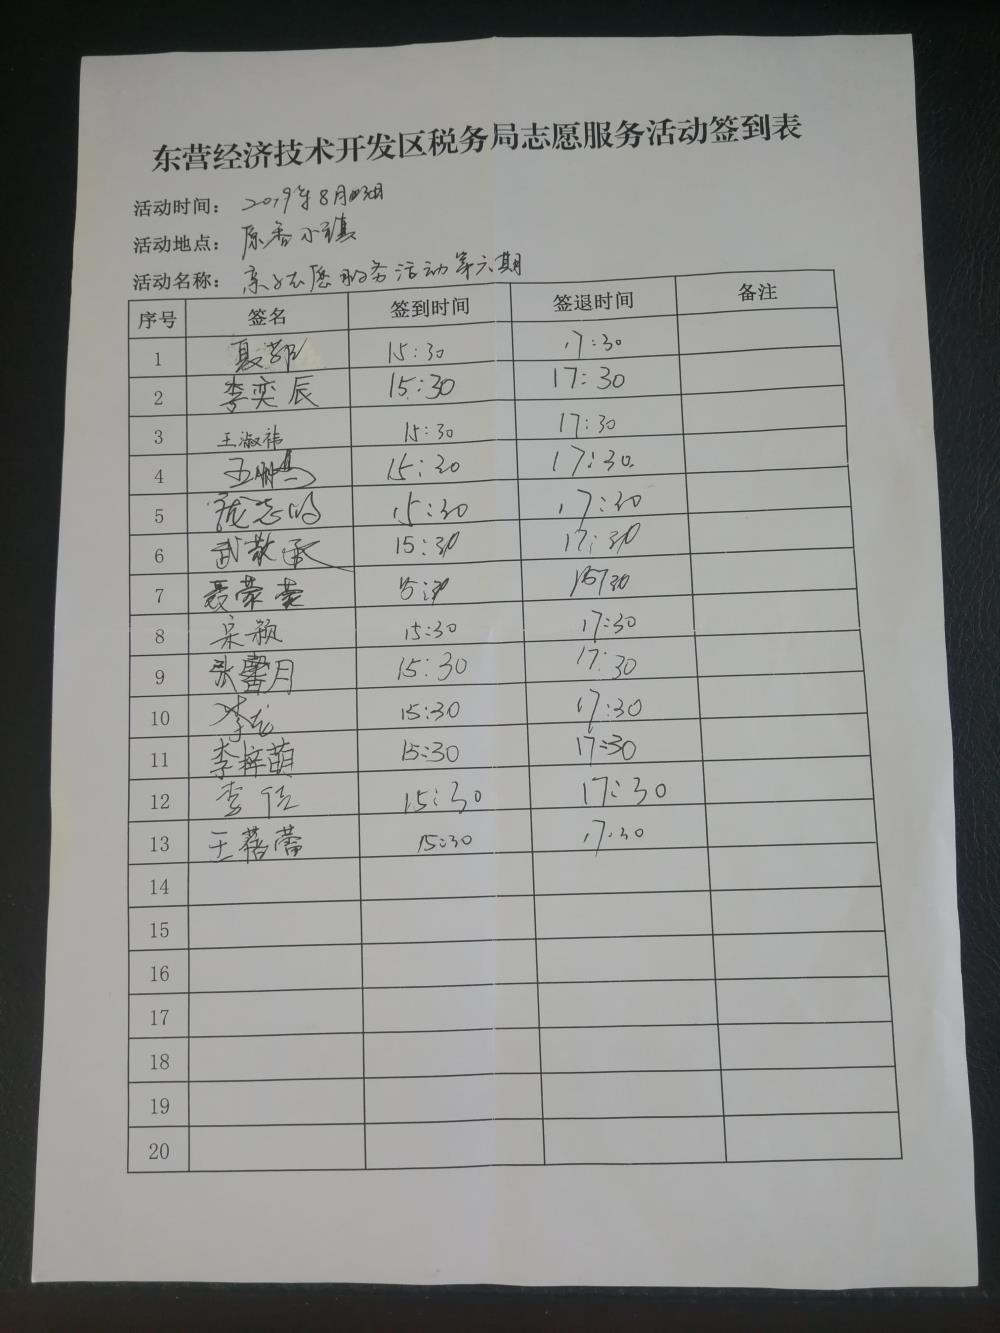 东营经济技术开发区税务局志愿服务活动签到表
活动时间： 2019年8月
活动地点： 原香小镇
活动名称： 亲子志愿服务活动第六期
序号 签名 签到时间 签退时间 备注
1 15:30 17:30
2 李奕辰 15:30 17:30
3 王淑祎 15:30 17:30
4 15:30 17:30
5 15:30 17:30
6 武敬承 15:30 17:30
7 聂荣荣
8 宋颖 15:30 17:30
9 张馨月 15:30 17:30
10 李龙 15:30 17:30
11 李梓萌 15:30 17:30
12 15:30 17:30
13 王蓓蕾 15:30 17:30
14
15
16
17
18
19
20